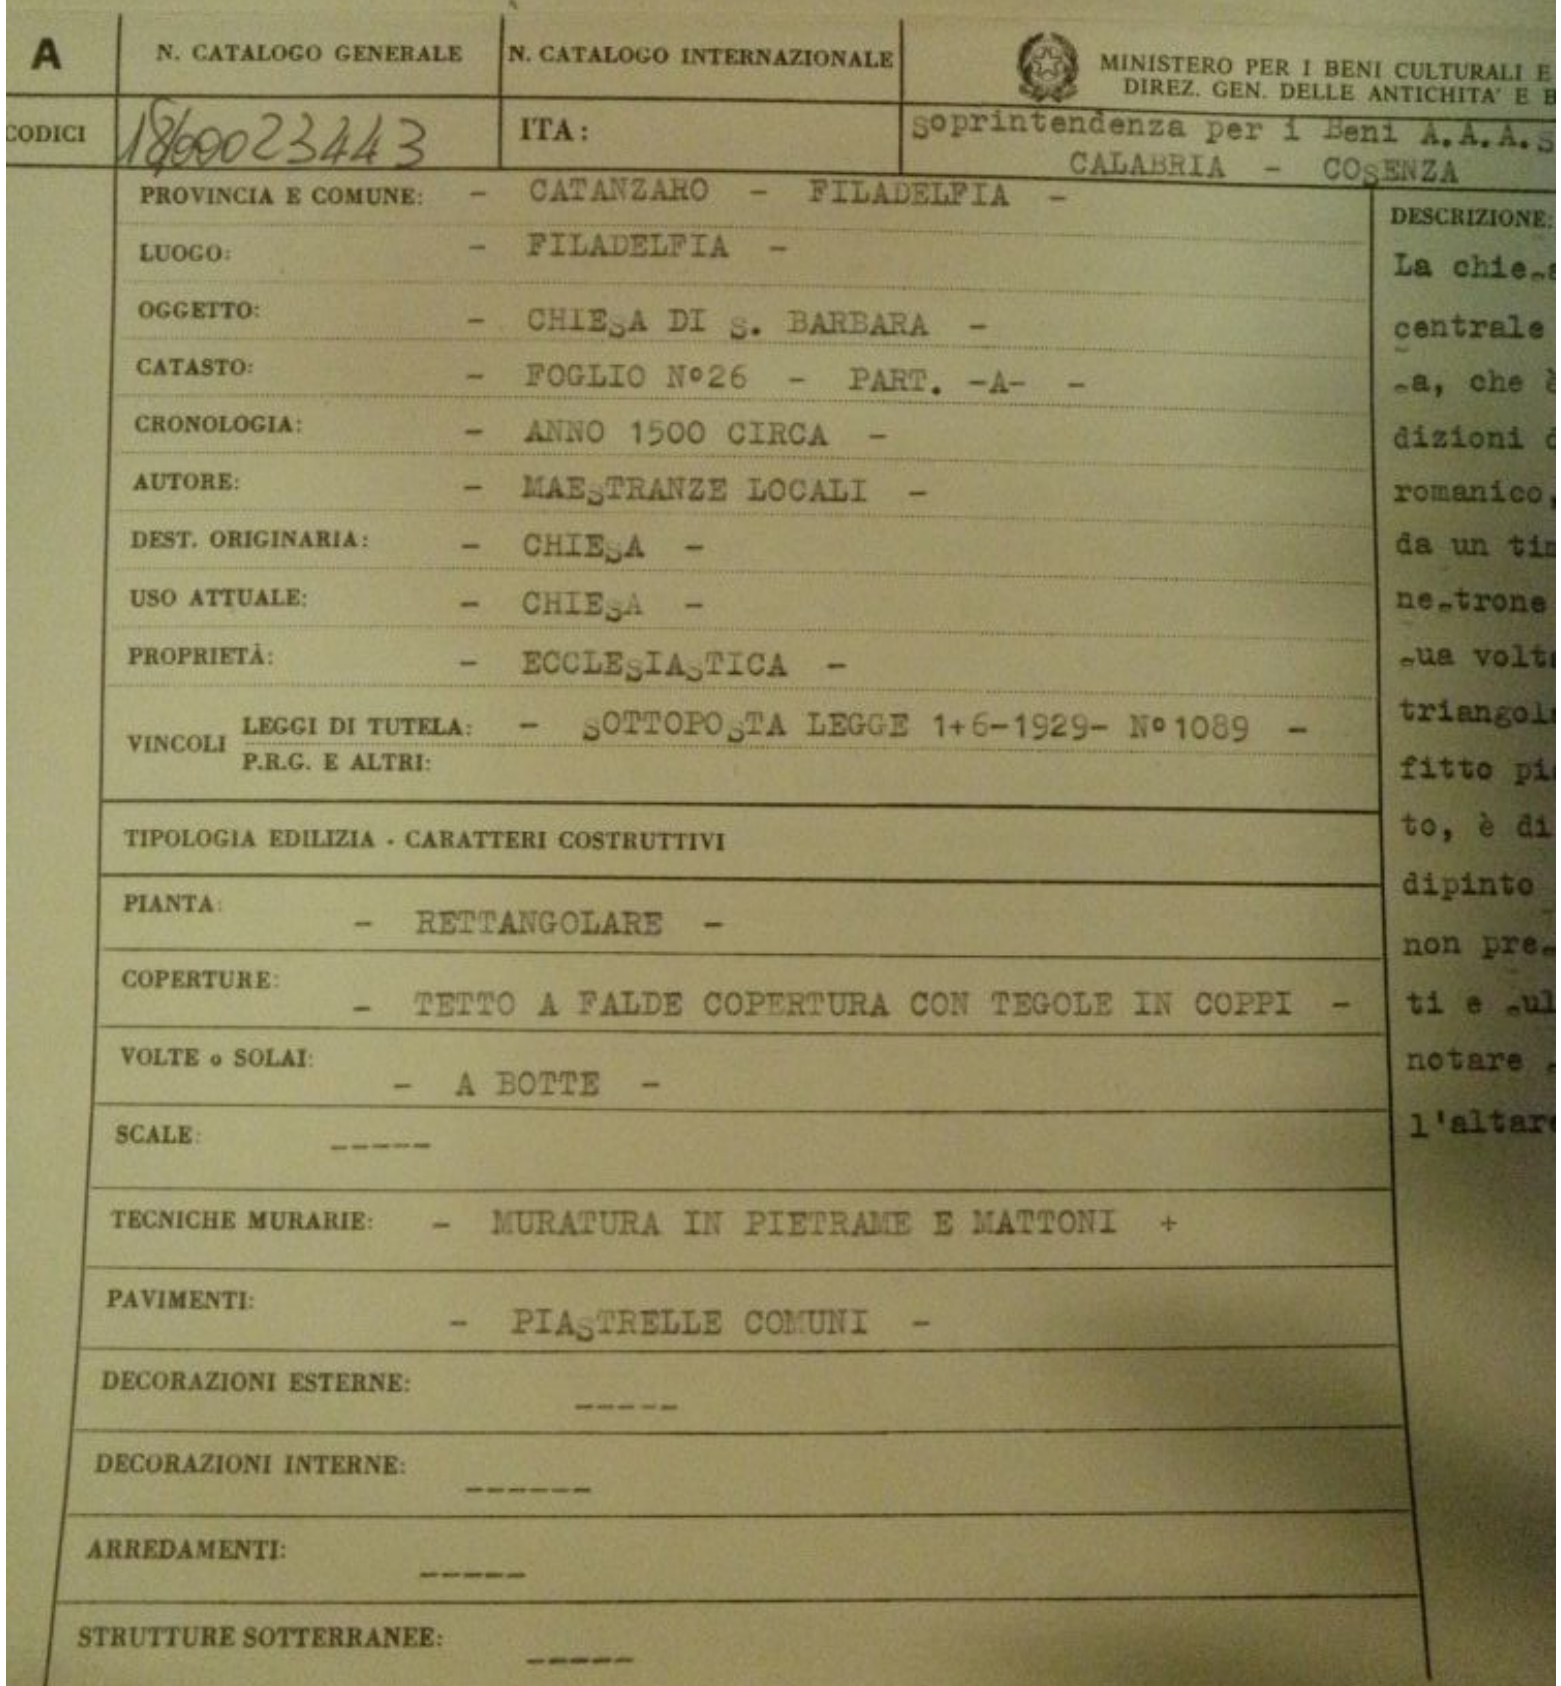 A
N. CATALOGO GENERALE
N. CATALOGO INTERNAZIONALE
MINISTERO PER I BENI CULTURALI E
DIREZ. GEN. DELLE ANTICHITA' E B
CODICI
18/00023443
ITA:
Soprintendenza per i Beni A.A.A.S
CALABRIA - COSENZA
PROVINCIA E COMUNE: - CATANZARO - FILADELFIA -
LUOGO: - FILADELFIA -
OGGETTO: - CHIESA DI S. BARBARA -
CATASTO: - FOGLIO N°26 - PART. -A- -
CRONOLOGIA: - ANNO 1500 CIRCA -
AUTORE: - MAESTRANZE LOCALI -
DEST. ORIGINARIA: - CHIESA -
USO ATTUALE: - CHIESA -
PROPRIETÀ: - ECCLESIASTICA -
VINCOLI
LEGGI DI TUTELA: - SOTTOPOSTA LEGGE 1+6-1929- N°1089 -
P.R.G. E ALTRI:
TIPOLOGIA EDILIZIA - CARATTERI COSTRUTTIVI
PIANTA: - RETTANGOLARE -
COPERTURE: - TETTO A FALDE COPERTURA CON TEGOLE IN COPPI -
VOLTE o SOLAI: - A BOTTE -
SCALE: -----
TECNICHE MURARIE: - MURATURA IN PIETRAME E MATTONI +
PAVIMENTI: - PIASTRELLE COMUNI -
DECORAZIONI ESTERNE: -----
DECORAZIONI INTERNE: ------
ARREDAMENTI: -----
STRUTTURE SOTTERRANEE: -----
DESCRIZIONE:
La chiesa
centrale
sa, che è
dizioni d
romanico,
da un tim
nestrone
sua volta
triangola
fitto pia
to, è di
dipinto
non pres
ti e sul
notare s
l'altare